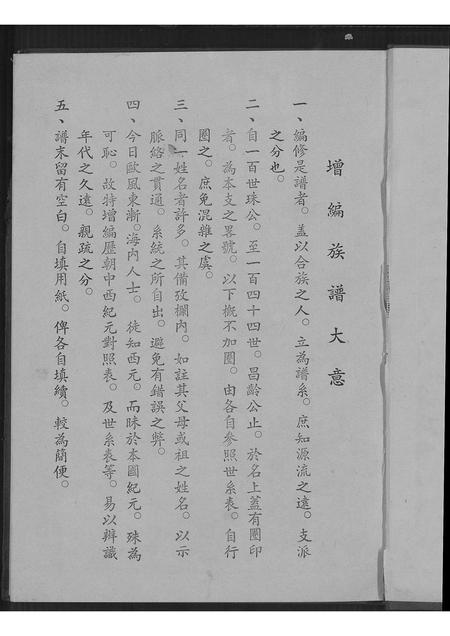 增編族譜大意
一、編修是譜者。蓋以合族之人。立為譜系。庶知源流之遠。支派
之分也。
二、自一百世珠公。至一百四十四世。昌齡公止。於名上蓋有圈印
者。為本支之畧號。以下概不加圈。由各自參照世系表。自行
圈之。庶免混雜之虞。
三、同一姓名者許多。其備攷欄內。如註其父母或祖之姓名。以示
脈絡之貫通。系統之所自出。避免有錯誤之弊。
四、今日歐風東漸。海內人士。徒知西元。而昧於本國紀元。殊為
可恥。故特增編歷朝中西紀元對照表。及世系表等。易以辨識
年代之久遠。親疏之分。
五、譜末留有空白。自填用紙。俾各自填續。較為簡便。